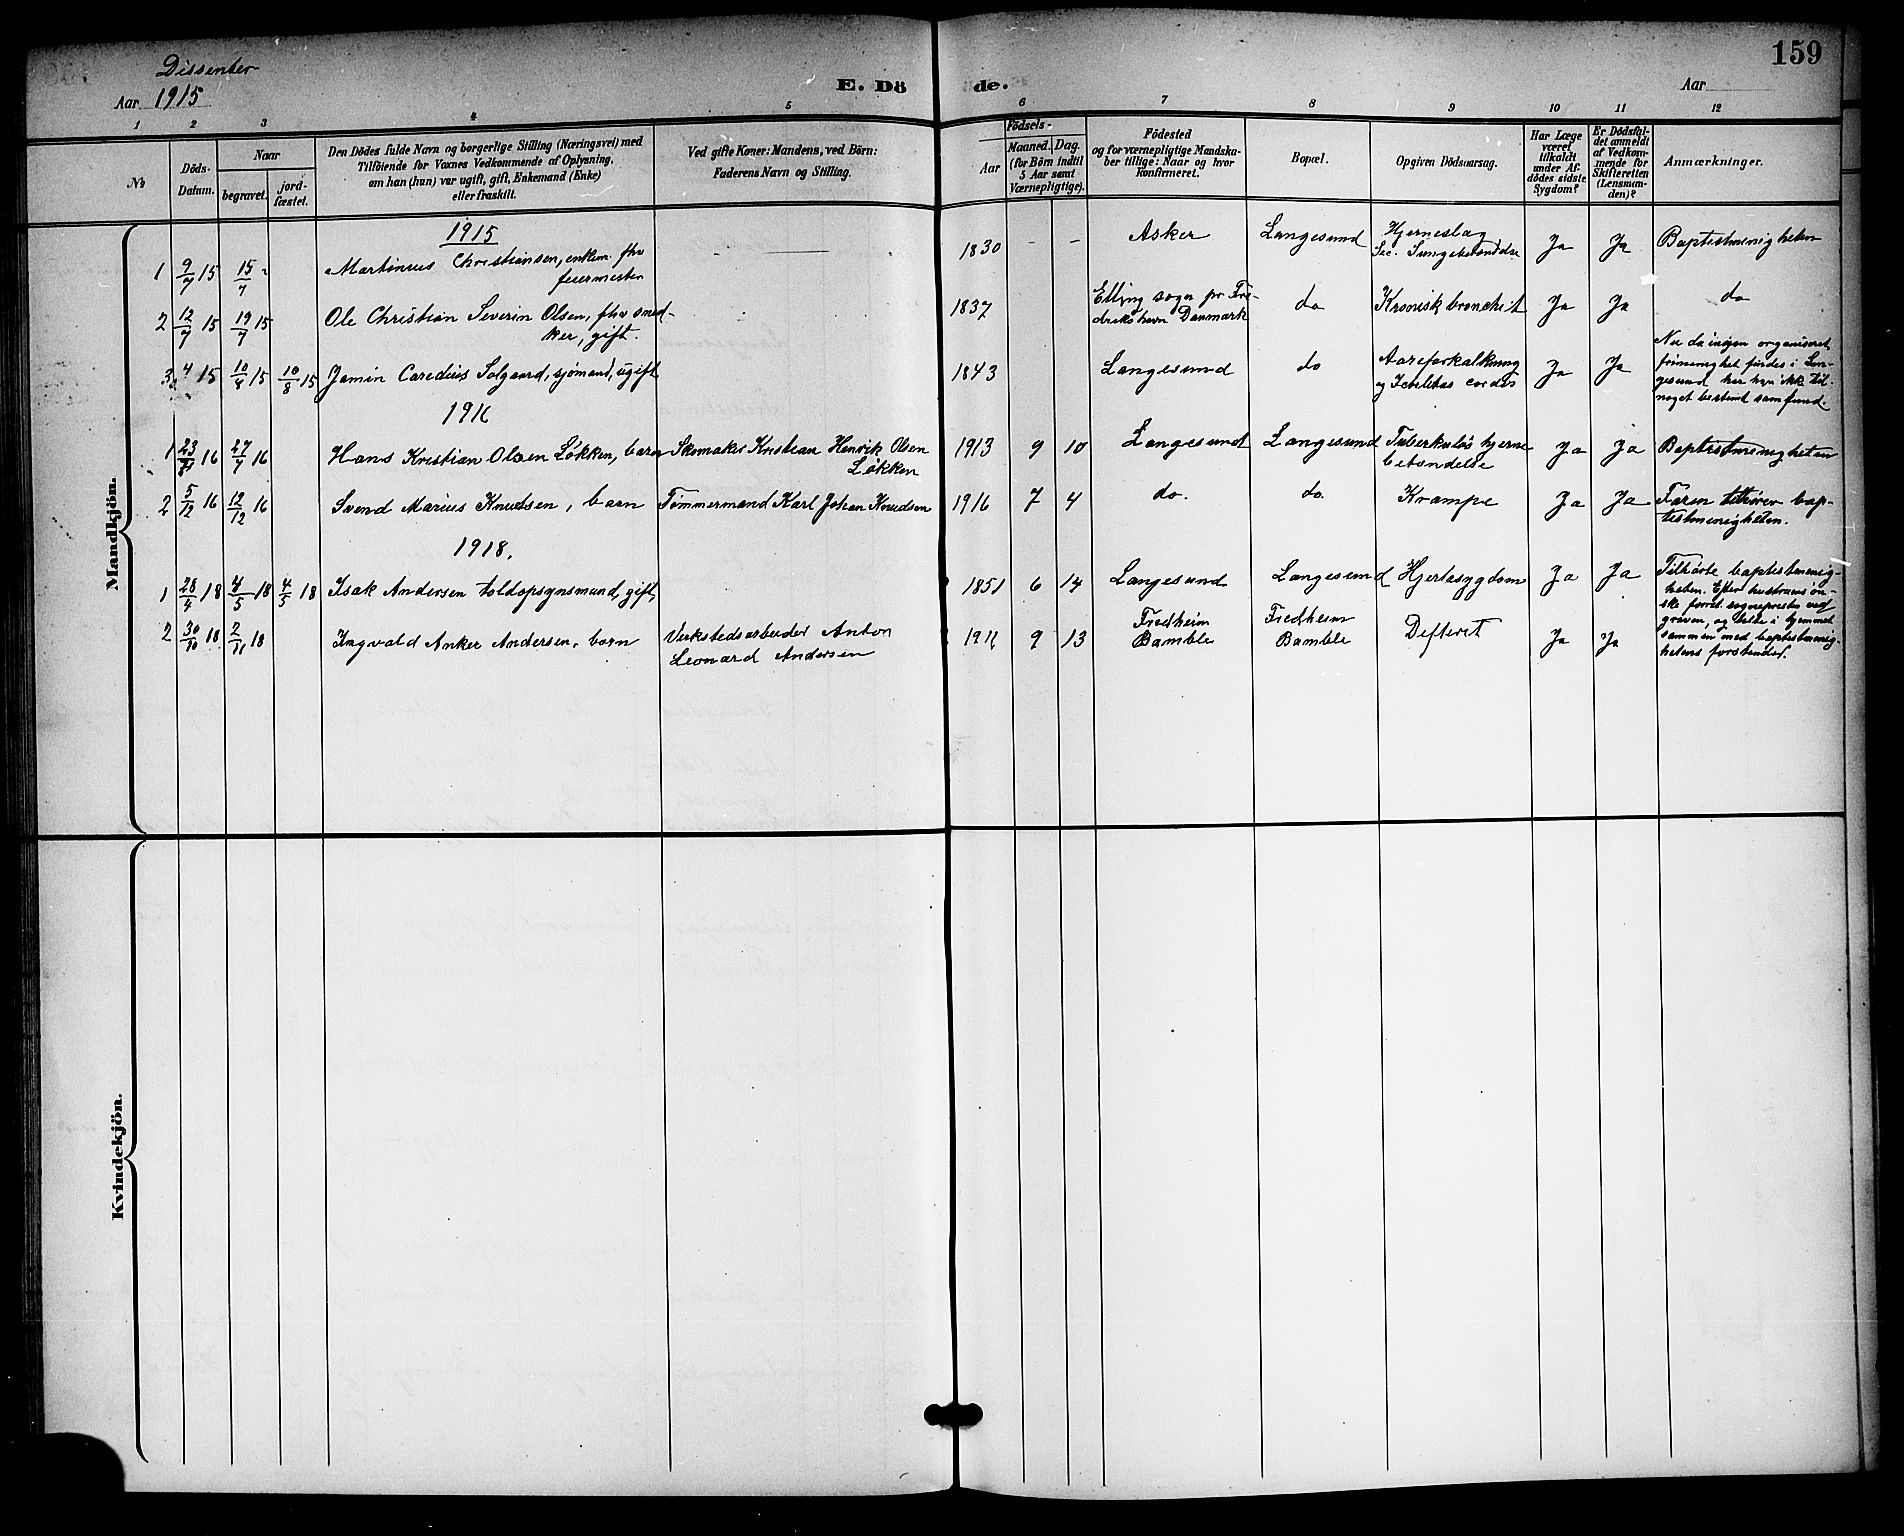 Dissenter
Aar 1915
E. Dö
de.
Aar
159
1 2 3 4 5 6 7 8 9 10 11 12
№
Döds-
Datum.
Naar
begravet.
jord-
fæstet.
Den Dödes fulde Navn og borgerlige Stilling (Næringsvei) med
Tilföiende for Voxnes Vedkommende af Oplysning,
om han (hun) var ugift, gift, Enkemand (Enke)
eller fraskilt.
Ved gifte Koner: Mandens, ved Börn:
Faderens Navn og Stilling.
Födsels-
Aar
Maaned.
Dag.
(for Börn indtil
5 Aar samt
Værnepligtige).
Födested
og for værnepligtige Mandska-
ber tillige: Naar og hvor
konfirmeret.
Bopæl.
Opgiven Dödsaarsag.
Har Læge
været
tilkaldt
under Af-
dödes sidste
Sygdom?
Er Dödsfal-
det anmeldt
af Vedkom-
mende for
Skifteretten
(Lensman-
den)?
Anmærkninger.
Mandkjön.
1915
1 9/7 15 15/7 " Martinius Christiansen, enkem. fhv
feiermester
1830 - - Asker Langesund Hjerneslag
Sec. Lungebetændelse Ja Ja Baptistmenigheten
2 12/7 15 19/7 15 Ole Christian Severin Olsen, fhv sned-
ker, gift.
1837 Elling sogn pr Fre-
drikshavn Danmark do Kronisk bronchit Ja Ja do
3 4 15 10/8 15 10/8 15 Jamin Caredius Solgaard, sjömand, ugift
1843 Langesund do Aareforkalkning
og Debilitas cordis Ja Ja Nu da ingen organiseret
frimenighet findes i Lan-
gesund har han ikke til-
noget bestemt samfund.
1916
1 23/7 16 27/7 16 Hans Kristian Olsen Løkken, barn Skomaker Kristian Henrik Olsen
Løkken
1913 9 10 Langesund Langesund Tuberkuløs hjerne
betændelse Ja Ja Baptistmenigheten
2 5/12 16 12/12 16 Svend Marius Knudsen, barn Tømmermand Karl Johan Knudsen
1916 7 4 do. do. Krampe Ja Ja Faren tilhører bap-
tistmenigheten.
1918.
1 28/4 18 4/5 18 4/5 18 Isak Andersen toldopsynsmand, gift,
1851 6 14 Langesund Langesund Hjertesygdom Ja Ja Tilhörte baptistmenig-
heten. Efter hustruens ön-
ske forret. sogneprest ved
graven, og talte i hjemmet
sammen med baptistmenig-
hetens forstander.
2 30/10 18 2/11 18 Ingvald Anker Andersen, barn Verkstedsarbeider Anton
Leonard Andersen
1911 9 13 Fredheim
Bamble Fredheim
Bamble Difterit Ja Ja
Kvindekjön.